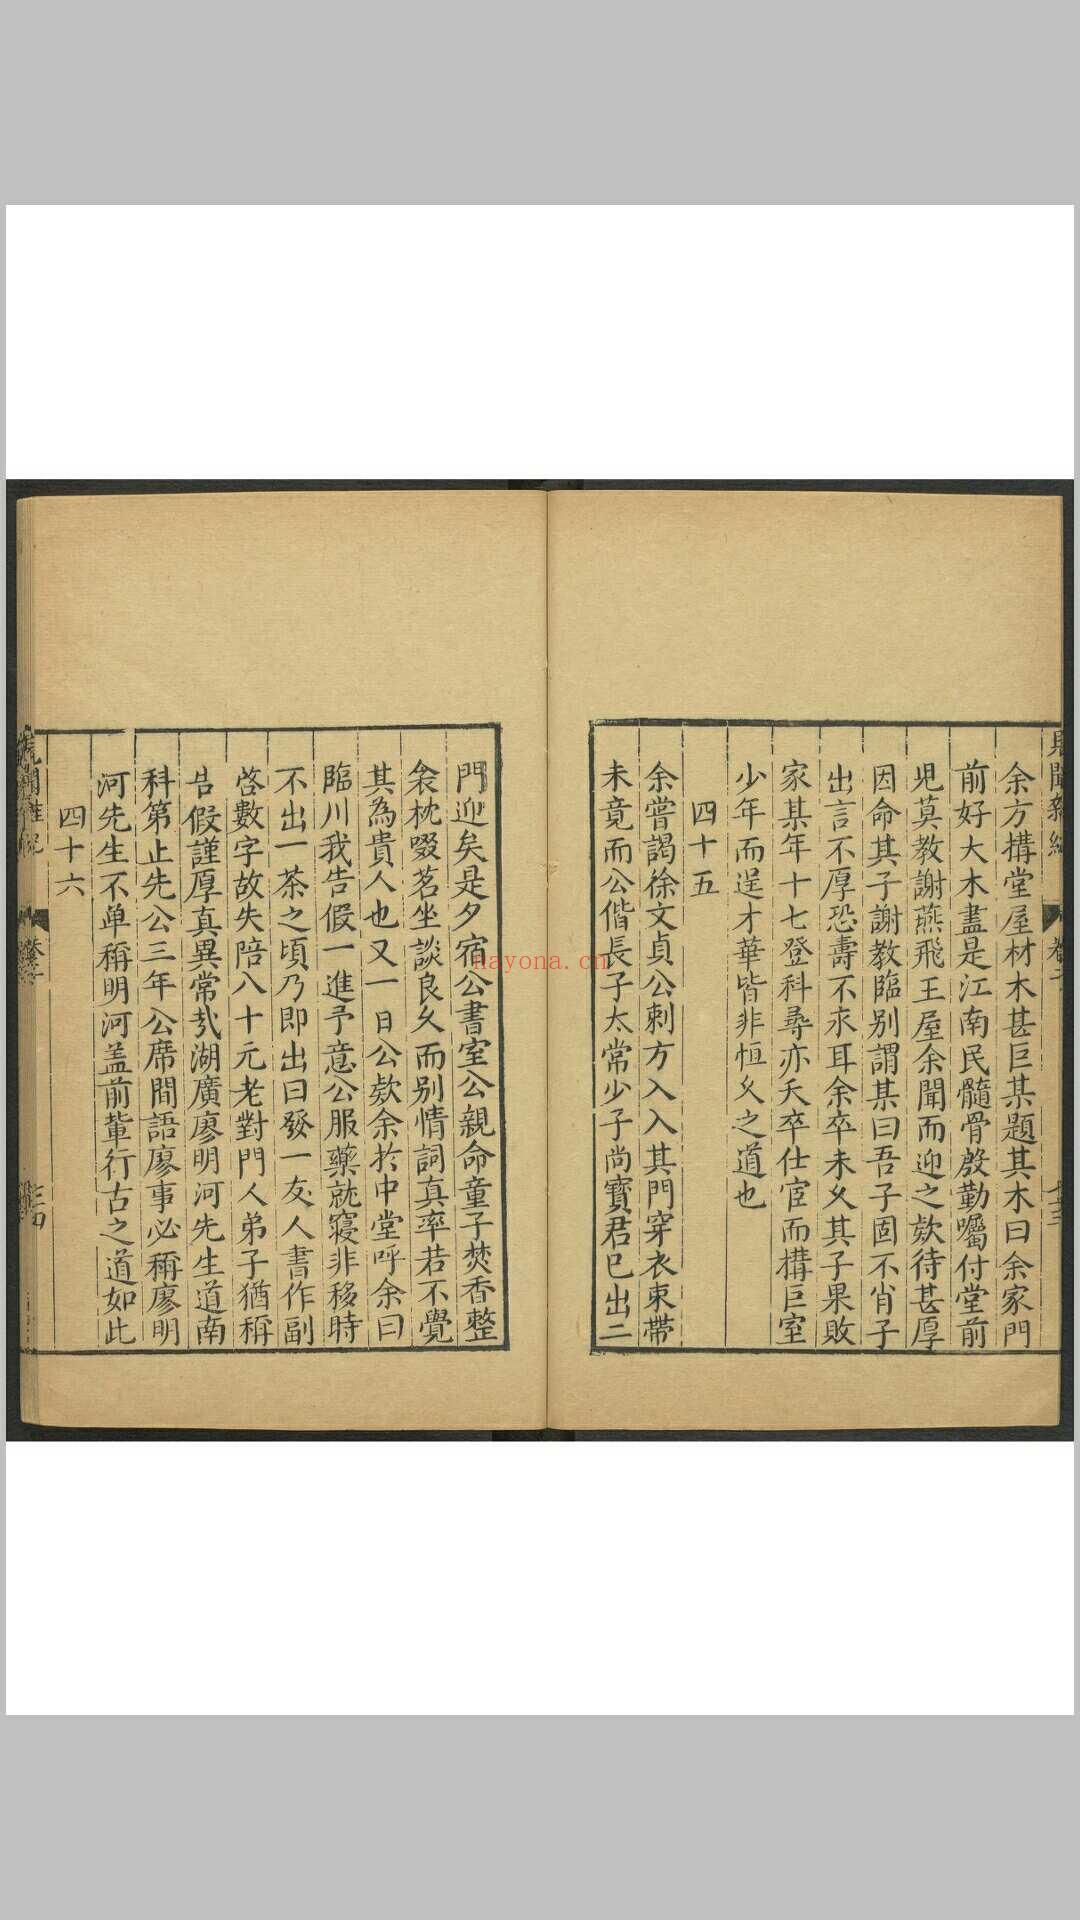 余方搆堂屋材木甚巨某題其木曰余家門
前好大木盡是江南民髓骨殷勤囑付堂前
児莫教謝燕飛王屋余聞而迎之欵待甚厚
因命其子謝教臨别謂某曰吾子固不肖子
出言不厚恐壽不永耳余卒未乆其子果敗
家某年十七登科尋亦夭卒仕宦而搆巨室
少年而逞才華皆非恒乆之道也
四十五
余嘗謁徐文貞公刺方入入其門穿衣束帶
未竟而公偕長子太常少子尚寶君已出二
門迎矣是夕宿公書室公親命童子焚香整
衾枕啜茗坐談良乆而别情詞真率若不覺
其為貴人也又一日公欵余扵中堂呼余曰
臨川我告假一進予意公服藥就寢非移時
不出一茶之頃乃即出曰發一友人書作副
啓數字故失陪八十元老對門人弟子猶稱
告假謹厚真異常㢤湖廣廖明河先生道南
科第止先公三年公席間語廖事必稱廖明
河先生不单稱明河盖前軰行古之道如此
四十六
見聞雜紀
nayona.cn